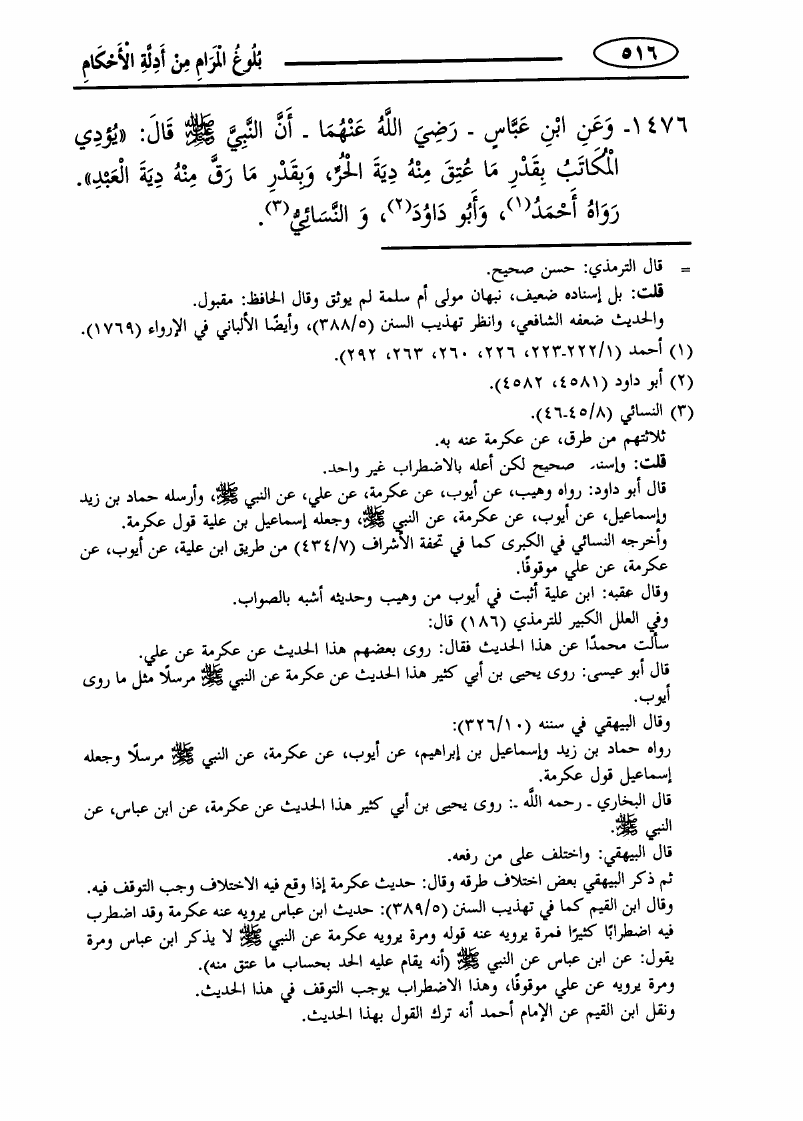 ٥١٦ بُلُوغُ الْمَرَامِ مِنْ أَدِلَّةِ الْأَحْكَامِ
١٤٧٦ـ وَعَنِ ابْنِ عَبَّاسٍ ـ رَضِيَ اللَّهُ عَنْهُمَا ـ أَنَّ النَّبِيَّ ﷺ قَالَ: «يُؤدِي
الْمُكَاتَبُ بِقَدْرِ مَا عُتِقَ مِنْهُ دِيَةَ الْحُرِّ، وَبِقَدْرِ مَا رَقَّ مِنْهُ دِيَةَ الْعَبْدِ».
رَوَاهُ أَحْمَدُ(١)، وَأَبُو دَاوُدَ(٢)، وَ النَّسَائِيُّ(٣).
= قال الترمذي: حسن صحيح.
قلت: بل إسناده ضعيف، نبهان مولى أم سلمة لم يوثق وقال الحافظ: مقبول.
والحديث ضعفه الشافعي، وانظر تهذيب السنن (٣٨٨/٥)، وأيضًا الألباني في الإرواء (١٧٦٩).
(١) أحمد (٢٢٢/١ـ٢٢٣، ٢٢٦، ٢٦٠، ٢٦٣، ٢٩٢).
(٢) أبو داود (٤٥٨١، ٤٥٨٢).
(٣) النسائي (٤٥/٨ـ٤٦).
ثلاثتهم من طرق، عن عكرمة عنه به.
قلت: وإسنا. صحيح لكن أعله بالاضطراب غير واحد.
قال أبو داود: رواه وهيب، عن أيوب، عن عكرمة، عن علي، عن النبي ﷺ، وأرسله حماد بن زيد
وإسماعيل، عن أيوب، عن عكرمة، عن النبي ﷺ، وجعله إسماعيل بن علية قول عكرمة.
وأخرجه النسائي في الكبرى كما في تحفة الأشراف (٤٣٤/٧) من طريق ابن علية، عن أيوب، عن
عكرمة، عن علي موقوفًا.
وقال عقبه: ابن علية أثبت في أيوب من وهيب وحديثه أشبه بالصواب.
وفي العلل الكبير للترمذي (١٨٦) قال:
سألت محمدًا عن هذا الحديث فقال: روى بعضهم هذا الحديث عن عكرمة عن علي.
قال أبو عيسى: روى يحيى بن أبي كثير هذا الحديث عن عكرمة عن النبي ﷺ مرسلًا مثل ما روى
أيوب.
وقال البيهقي في سننه (٣٢٦/١٠):
رواه حماد بن زيد وإسماعيل بن إبراهيم، عن أيوب، عن عكرمة، عن النبي ﷺ مرسلًا وجعله
إسماعيل قول عكرمة.
قال البخاري ـ رحمه اللَّه ـ: روى يحيى بن أبي كثير هذا الحديث عن عكرمة، عن ابن عباس، عن
النبي ﷺ.
قال البيهقي: واختلف على من رفعه.
ثم ذكر البيهقي بعض اختلاف طرقه وقال: حديث عكرمة إذا وقع فيه الاختلاف وجب التوقف فيه.
وقال ابن القيم كما في تهذيب السنن (٣٨٩/٥): حديث ابن عباس يرويه عنه عكرمة وقد اضطرب
فيه اضطرابًا كثيرًا فمرة يرويه عنه قوله ومرة يرويه عكرمة عن النبي ﷺ لا يذكر ابن عباس ومرة
يقول: عن ابن عباس عن النبي ﷺ (أنه يقام عليه الحد بحساب ما عتق منه).
ومرة يرويه عن علي موقوفًا، وهذا الاضطراب يوجب التوقف في هذا الحديث.
ونقل ابن القيم عن الإمام أحمد أنه ترك القول بهذا الحديث.